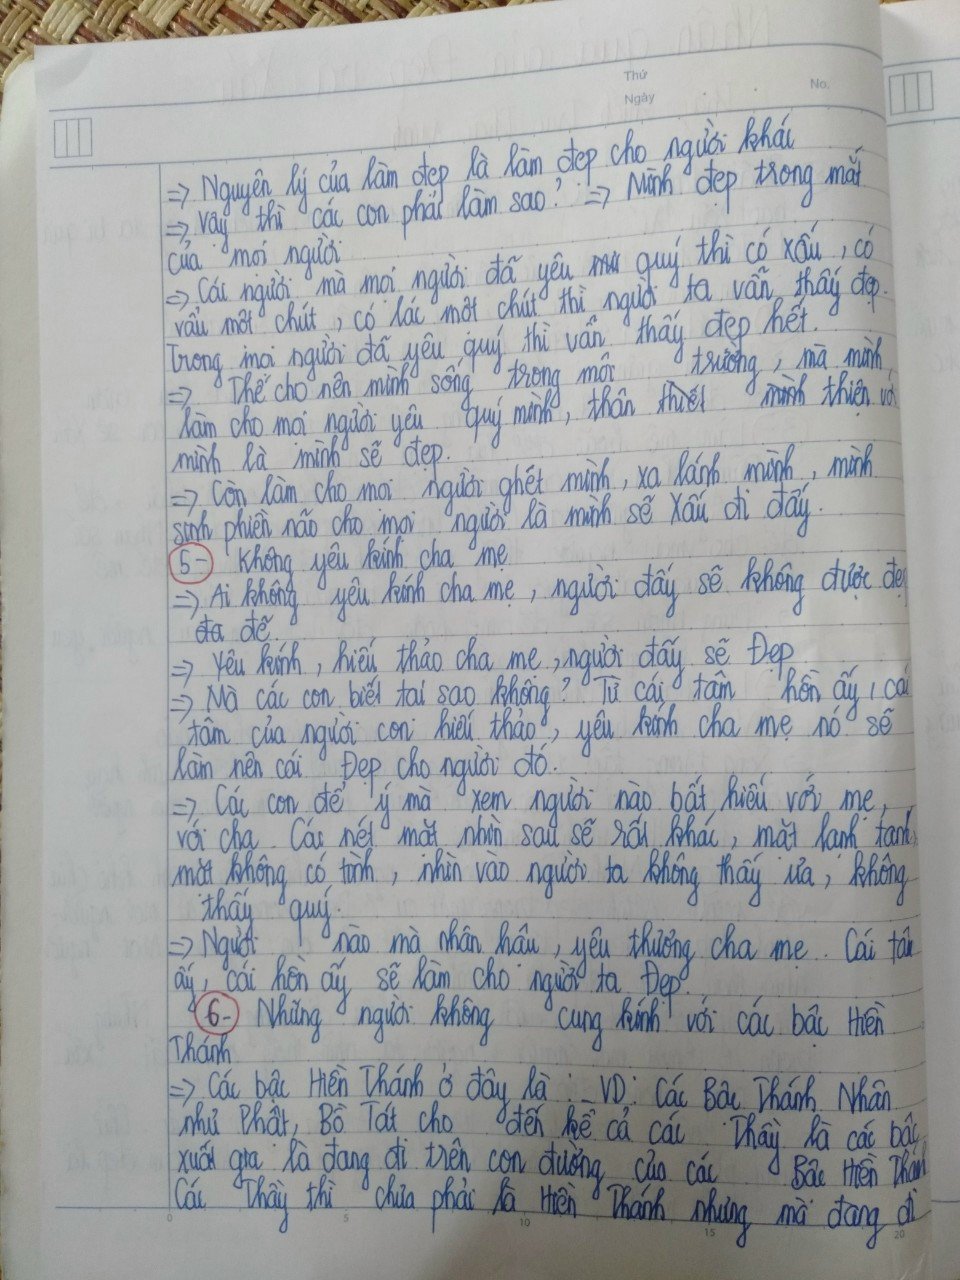 Thứ
No.
Ngày
=> Nguyên lý của làm đẹp là làm đẹp cho người khác
=> Vậy thì các con phải làm sao? => Mình đẹp trong mắt
của mọi người
=> Cái người mà mọi người đã yêu quý thì có xấu, có
vẩu một chút, có lác một chút thì người ta vẫn thấy đẹp.
Trong mọi người đã yêu quý thì vẫn thấy đẹp hết.
=> Thế cho nên mình sống trong môi trường, mà mình
làm cho mọi người yêu quý mình, thân thiết mình thiện với
mình là mình sẽ đẹp.
=> Còn làm cho mọi người ghét mình, xa lánh mình, mình
sinh phiền não cho mọi người là mình sẽ xấu đi đấy.
5- Không yêu kính cha mẹ
=> Ai không yêu kính cha mẹ, người đấy sẽ không được đẹp
đa đẽ.
=> Yêu kính, hiếu thảo cha mẹ, người đấy sẽ Đẹp
=> Mà các con biết tại sao không? Từ cái tâm hồn ấy, cái
tâm của người con hiếu thảo, yêu kính cha mẹ nó sẽ
làm nên cái Đẹp cho người đó.
=> Các con để ý mà xem người nào bất hiếu với mẹ,
với cha. Các nét mặt nhìn sau sẽ rất khác, mặt lạnh tanh,
mặt không có tình, nhìn vào người ta không thấy ưa, không
thấy quý.
=> Người nào mà nhân hậu, yêu thương cha mẹ. Cái tâm
ấy, cái hồn ấy sẽ làm cho người ta Đẹp.
6- Những người không cung kính với các bậc Hiền
Thánh
=> Các bậc Hiền Thánh ở đây là: _VD: Các Bậc Thánh Nhân
như Phật, Bồ Tát cho đến kể cả các Thầy là các bậc
xuất gia là đang đi trên con đường của các Bậc Hiền Thánh
Các Thầy thì chưa phải là Hiền Thánh nhưng mà đang đi
0 5 10 15 20